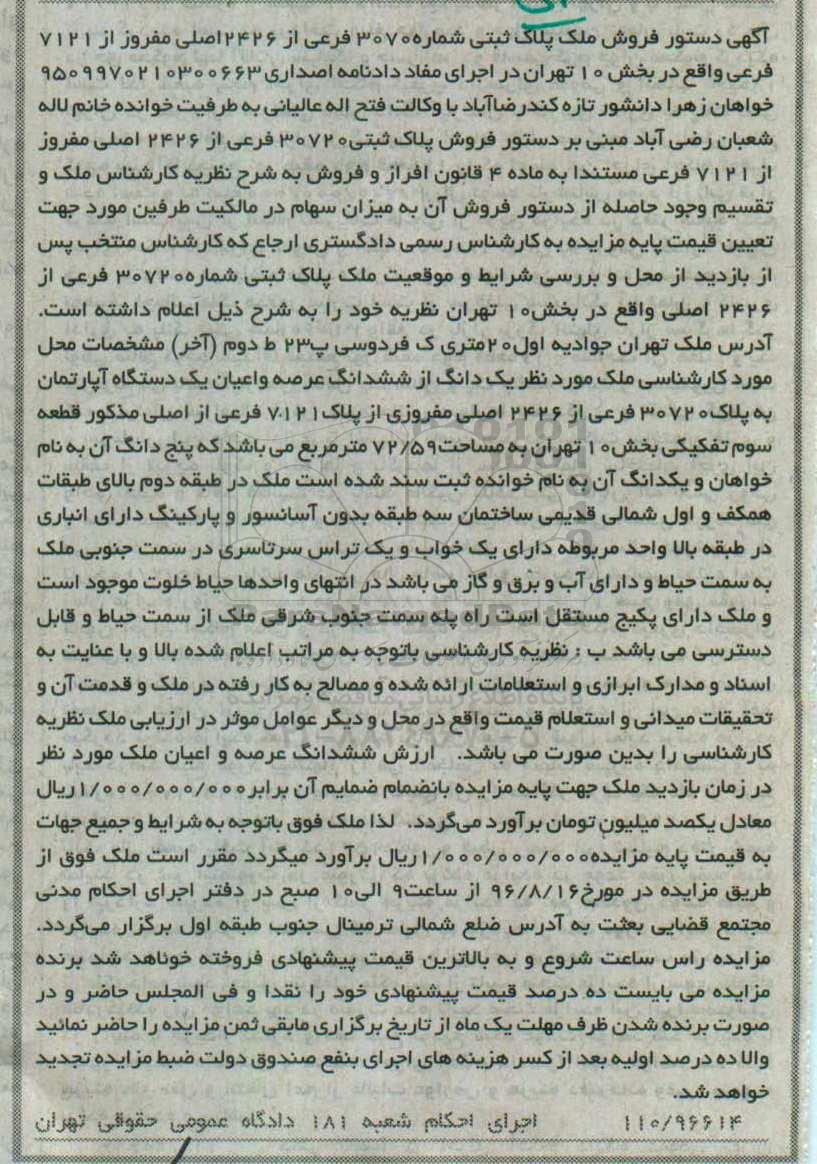 آگهی دستور فروش ملک پلاک ثبتی شماره۳۰۷۰ فرعی از ۲۴۲۶اصلی مفروز از ۷۱۲۱
فرعی واقع در بخش ۱۰ تهران در اجرای مفاد دادنامه اصداری ۹۵۰۹۹۷۰۲۱۰۳۰۰۶۶۳
خواهان زهرا دانشور تازه کندرضاآباد با وکالت فتح اله عالیانی به طرفیت خوانده خانم لاله
شعبان رضی آباد مبنی بر دستور فروش پلاک ثبتی۳۰۷۲۰ فرعی از ۲۴۲۶ اصلی مفروز
از ۷۱۲۱ فرعی مستندا به ماده ۴ قانون افراز و فروش به شرح نظریه کارشناس ملک و
تقسیم وجود حاصله از دستور فروش آن به میزان سهام در مالکیت طرفین مورد جهت
تعیین قیمت پایه مزایده به کارشناس رسمی دادگستری ارجاع که کارشناس منتخب پس
از بازدید از محل و بررسی شرایط و موقعیت ملک پلاک ثبتی شماره۳۰۷۲۰ فرعی از
۲۴۲۶ اصلی واقع در بخش۱۰ تهران نظریه خود را به شرح ذیل اعلام داشته است.
آدرس ملک تهران جوادیه اول۲۰متری ک فردوسی پ۲۳ ط دوم (آخر) مشخصات محل
مورد کارشناسی ملک مورد نظر یک دانگ از ششدانگ عرصه واعیان یک دستگاه آپارتمان
به پلاک۳۰۷۲۰ فرعی از ۲۴۲۶ اصلی مفروزی از پلاک۷۰۱۲۱ فرعی از اصلی مذکور قطعه
سوم تفکیکی بخش۱۰ تهران به مساحت۷۲/۵۹ مترمربع می باشد که پنج دانگ آن به نام
خواهان و یکدانگ آن به نام خوانده ثبت سند شده است ملک در طبقه دوم بالای طبقات
همکف و اول شمالی قدیمی ساختمان سه طبقه بدون آسانسور و پارکینگ دارای انباری
در طبقه بالا واحد مربوطه دارای یک خواب و یک تراس سرتاسری در سمت جنوبی ملک
به سمت حیاط و دارای آب و برق و گاز می باشد در انتهای واحدها حیاط خلوت موجود است
و ملک دارای پکیج مستقل است راه پله سمت جنوب شرقی ملک از سمت حیاط و قابل
دسترسی می باشد ب : نظریه کارشناسی باتوجه به مراتب اعلام شده بالا و با عنایت به
اسناد و مدارک ابرازی و استعلامات ارائه شده و مصالح به کار رفته در ملک و قدمت آن و
تحقیقات میدانی و استعلام قیمت واقع در محل و دیگر عوامل موثر در ارزیابی ملک نظریه
کارشناسی را بدین صورت می باشد. ارزش ششدانگ عرصه و اعیان ملک مورد نظر
در زمان بازدید ملک جهت پایه مزایده بانضمام ضمایم آن برابر۱/۰۰۰/۰۰۰/۰۰۰ریال
معادل یکصد میلیون تومان برآورد می‌گردد. لذا ملک فوق باتوجه به شرایط و جمیع جهات
به قیمت پایه مزایده۱/۰۰۰/۰۰۰/۰۰۰ریال برآورد میگردد مقرر است ملک فوق از
طریق مزایده در مورخ۹۶/۸/۱۶ از ساعت۹ الی۱۰ صبح در دفتر اجرای احکام مدنی
مجتمع قضایی بعثت به آدرس ضلع شمالی ترمینال جنوب طبقه اول برگزار می‌گردد.
مزایده راس ساعت شروع و به بالاترین قیمت پیشنهادی فروخته خوناهد شد برنده
مزایده می بایست ده درصد قیمت پیشنهادی خود را نقدا و فی المجلس حاضر و در
صورت برنده شدن ظرف مهلت یک ماه از تاریخ برگزاری مابقی ثمن مزایده را حاضر نمائید
والا ده درصد اولیه بعد از کسر هزینه های اجرای بنفع صندوق دولت ضبط مزایده تجدید
خواهد شد.
۱۱۰/۹۶۶۱۴ اجرای احکام شعبه ۱۸۱ دادگاه عمومی حقوقی تهران